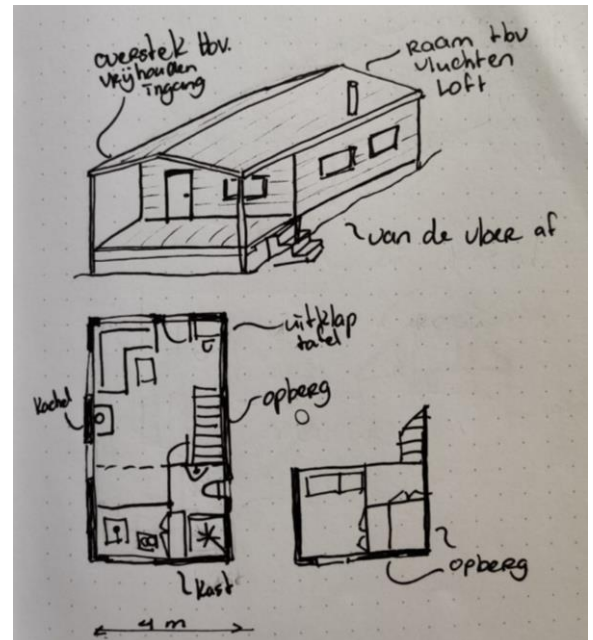 overstek tbv.
vrijhouden
ingang
Raam tbv
vluchten
Loft
van de vloer af
uitklap
tafel
Kachel
opberg
Kast
opberg
4 m